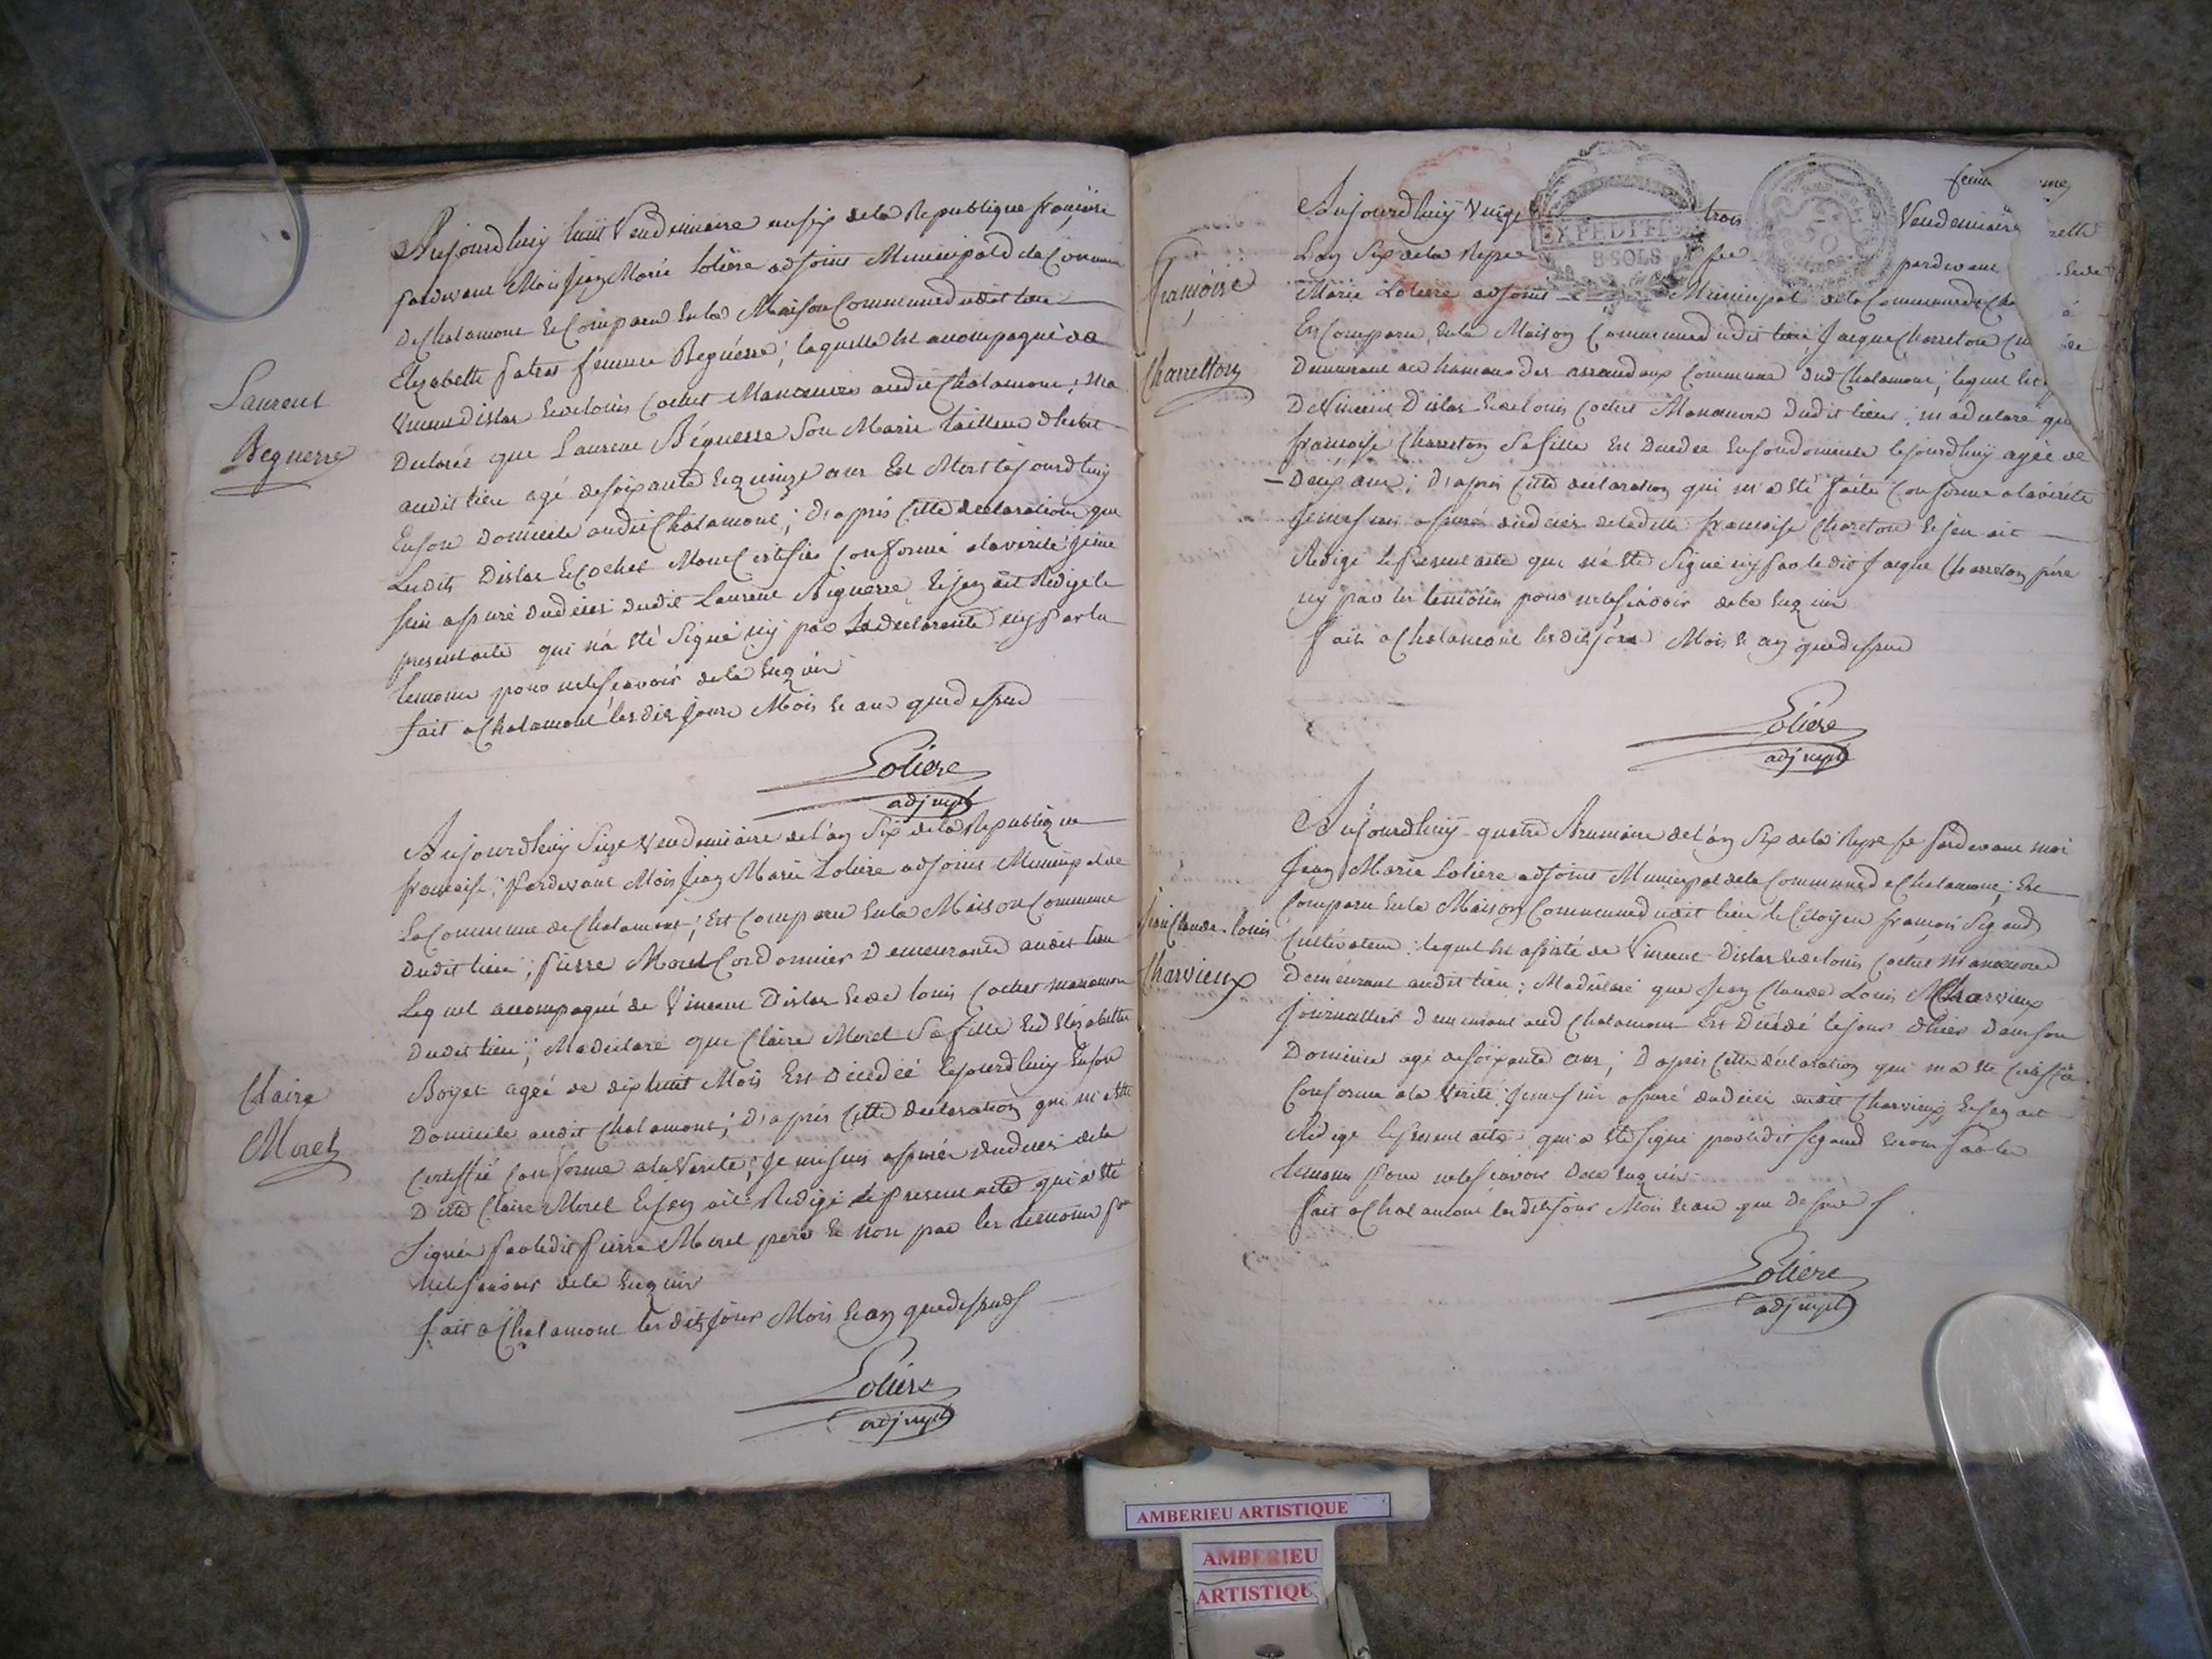 Laurent
Beguerre
Aujourdhuy huit Vendemiaire an six de la Republique françoise
pardevant Moi Jean Marie Loliere adjoint Municipal de la Commune
de Chalamont Est Comparu en la Maison Commune dudit lieu
Elizabette femme Beguerre; laquelle est acompagné de
Vincent Dislas et de louis Cochet Manœuvre audit Chalamont; m'a
Declaré que Laurent Béguerre Son Marie tailleur d'habit
audit lieu agé de soixante et quinze ans Est Mort lejourdhuy
En son domicile audit Chalamont; d'après Cette declaration que
Lesdits Dislas et Cochet M'ont Certifié Conforme a la vérité je me
suis assuré du décès dudit Laurent Béguerre et j'en ait Redigé le
present acte qui n'a été Signé ny par la declarante ny par les
temoins pour ne le sçavoir de ce Enquis
fait a Chalamont les dits jour Mois et an que dessus
Loliere
adj mpl
Claire
Morel
Aujourdhuy Seize Vendemiaire de l'an Six de la Republique
françoise; Pardevant Moi Jean Marie Loliere adjoint Municipal de
La Commune de Chalamont; Est Comparu en la Maison Commune
dudit lieu; Pierre Morel Cordonnier Demeurant audit lieu
Lequel acompagné de Vincent Dislas et de louis Cochet manœuvre
dudit lieu; M'a declaré que Claire Morel Sa fille et d'Elizabette
Boyet agée de dix huit Mois Est Décedée lejourdhuy En son
Domicile audit Chalamont; D'après Cette declaration qui m'a été
Certiffié Conforme a la Verite; Je me suis assuré du deces de la
Dite Claire Morel et j'en ait Redigé le present acte qui a été
Signé par ledit Pierre Morel pere et non par les temoins pour
ne le sçavoir de ce Enquis
fait a Chalamont les dits jour Mois et an que dessus
Loliere
adj mpl
Françoise
Charretton
Aujourdhuy Vingt trois Vendemiaire
EXPEDITION
8 SOLS
L'an Six de la Repue fse pardevant
Marie Loliere adjoint Municipal de la Commune de Cha
Est Comparu en la Maison Commune dudit lieu Jacque Charreton
Demeurant au hameau des Commune dud Chalamont; lequel
De Vincent Dislas et de louis Cochet Manœuvre dudit lieu; m'a declaré que
françoise Charreton Sa fille Est Decedée En son domicile lejourdhuy agée de
Deux ans; D'après Cette declaration qui m'a été faite Conforme a la vérité
Je me suis assuré du décès de ladite françoise Charreton et j'en ait
Redigé le present acte qui n'a été Signé ny par ledit Jacque Charreton père
ny par les temoins pour ne le sçavoir de ce Enquis
fait a Chalamont les dits jour Mois et an que dessus
Loliere
adj mpl
Jean Claude-louis
Charvieux
Aujourdhuy quatre Brumaire de l'an Six de la Repe fse pardevant moi
Jean Marie Loliere adjoint Municipal de la Commune de Chalamont; Est
Comparu en la Maison Commune dudit lieu le Citoyen françois Sigaud
Cultivateur; lequel est assisté de Vincent Dislas et de louis Cochet manœuvre
Demeurant audit lieu; M'a déclaré que Jean Claude Louis Charvieux
Journallier demeurant aud Chalamont Est Décédé le jour d'hier dans son
Domicile agé de soixante ans; D'après Cette déclaration qui m'a été Certiffié
Conforme a la Vérité Je me suis assuré du décès dudit Charvieux et j'en ait
Rédigé le present acte qui a été signé par ledit Sigaud et non par les
temoins pour ne le sçavoir de ce Enquis
fait a Chalamont les dits jour Mois et an que dessus
Loliere
adj mpl
AMBERIEU ARTISTIQUE
AMBERIEU
ARTISTIQU